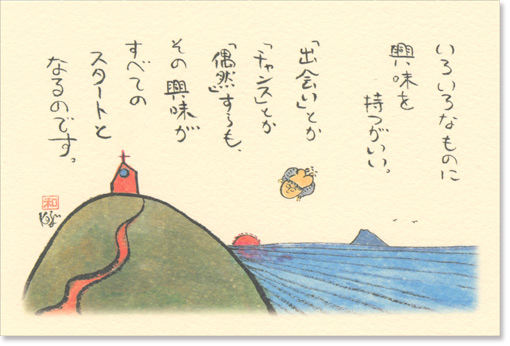 いろいろなものに
興味を
持つがいい。
「出会い」とか
「チャンス」とか
「偶然」すらも、
その興味が
すべての
スタートと
なるのです。
和